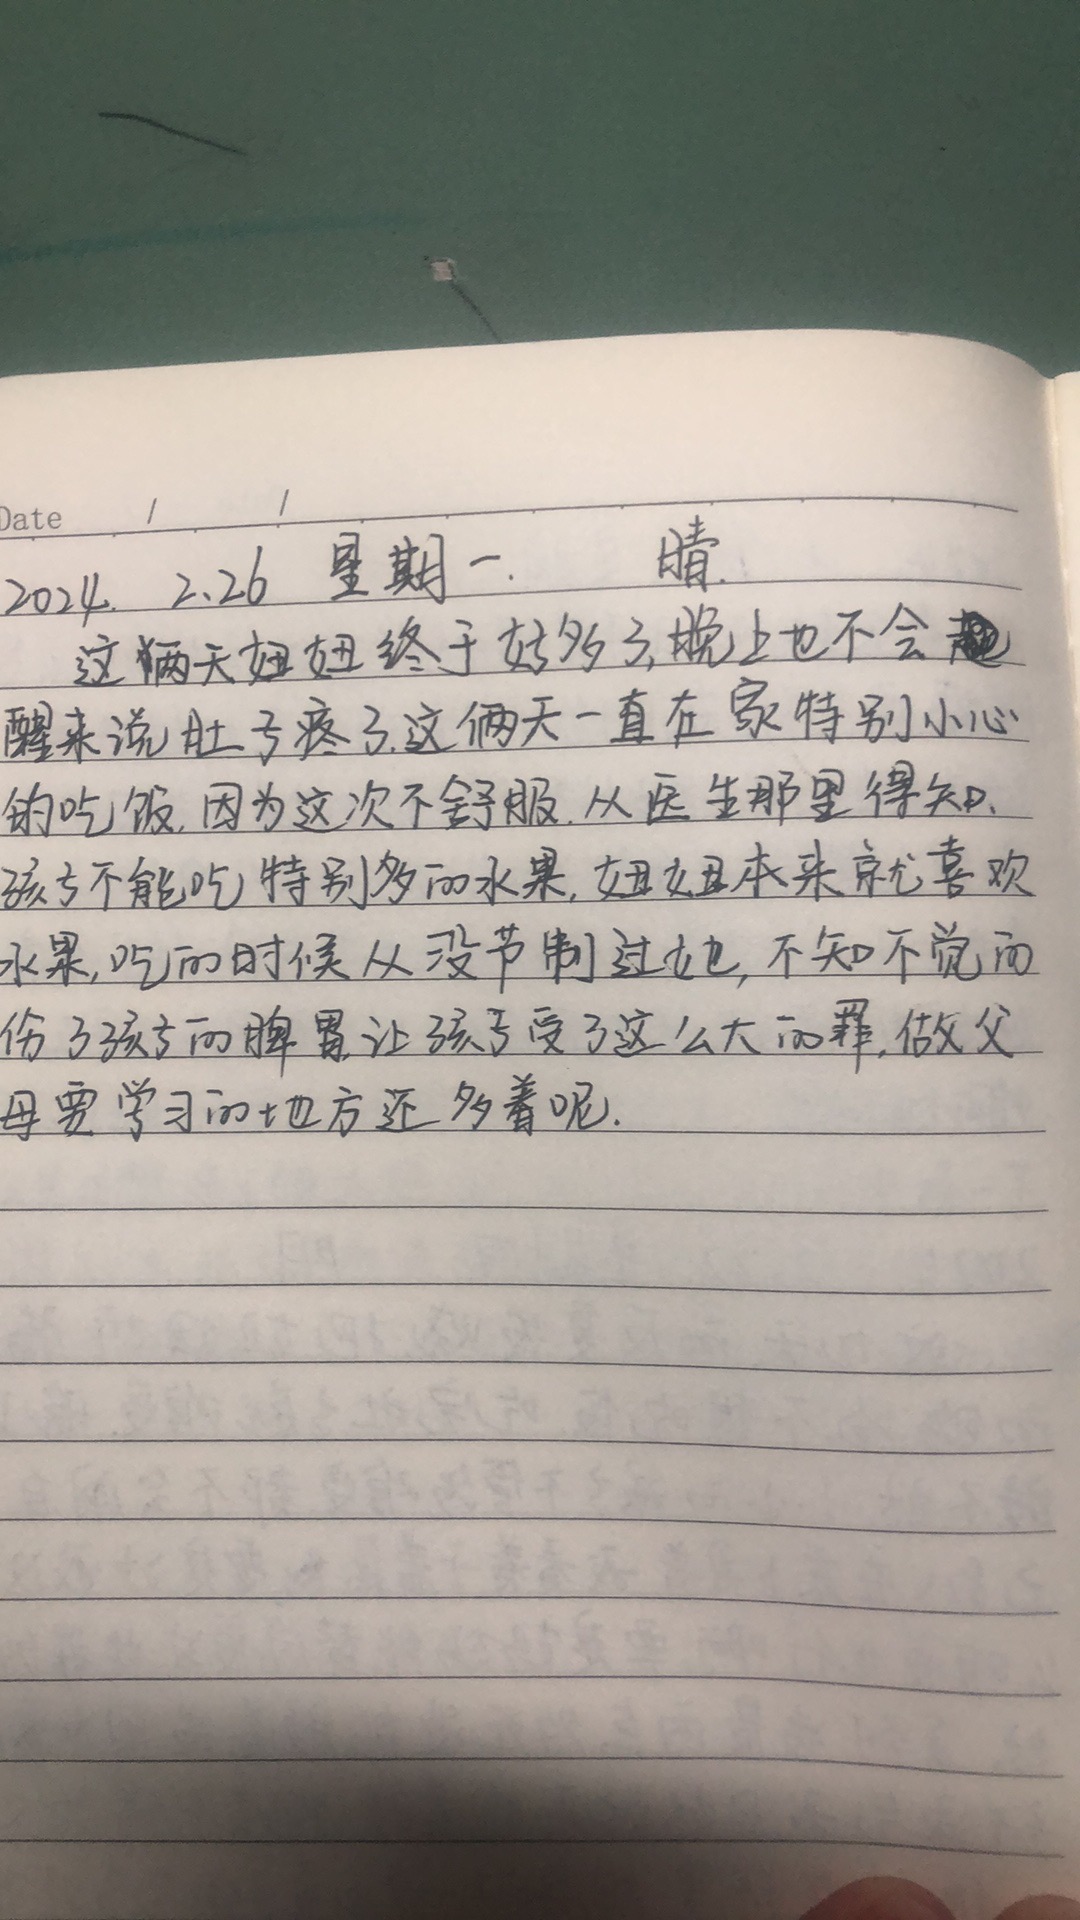 Date / /
2024. 2.26 星期一. 晴.
这俩天妞妞终于好多了,晚上也不会
醒来说肚子疼了.这俩天一直在家特别小心
的吃饭.因为这次不舒服.从医生那里得知.
孩子不能吃特别多的水果,妞妞本来就喜欢
水果,吃的时候从没节制过她,不知不觉的
伤了孩子的脾胃,让孩子受了这么大的罪,做父
母要学习的地方还多着呢.